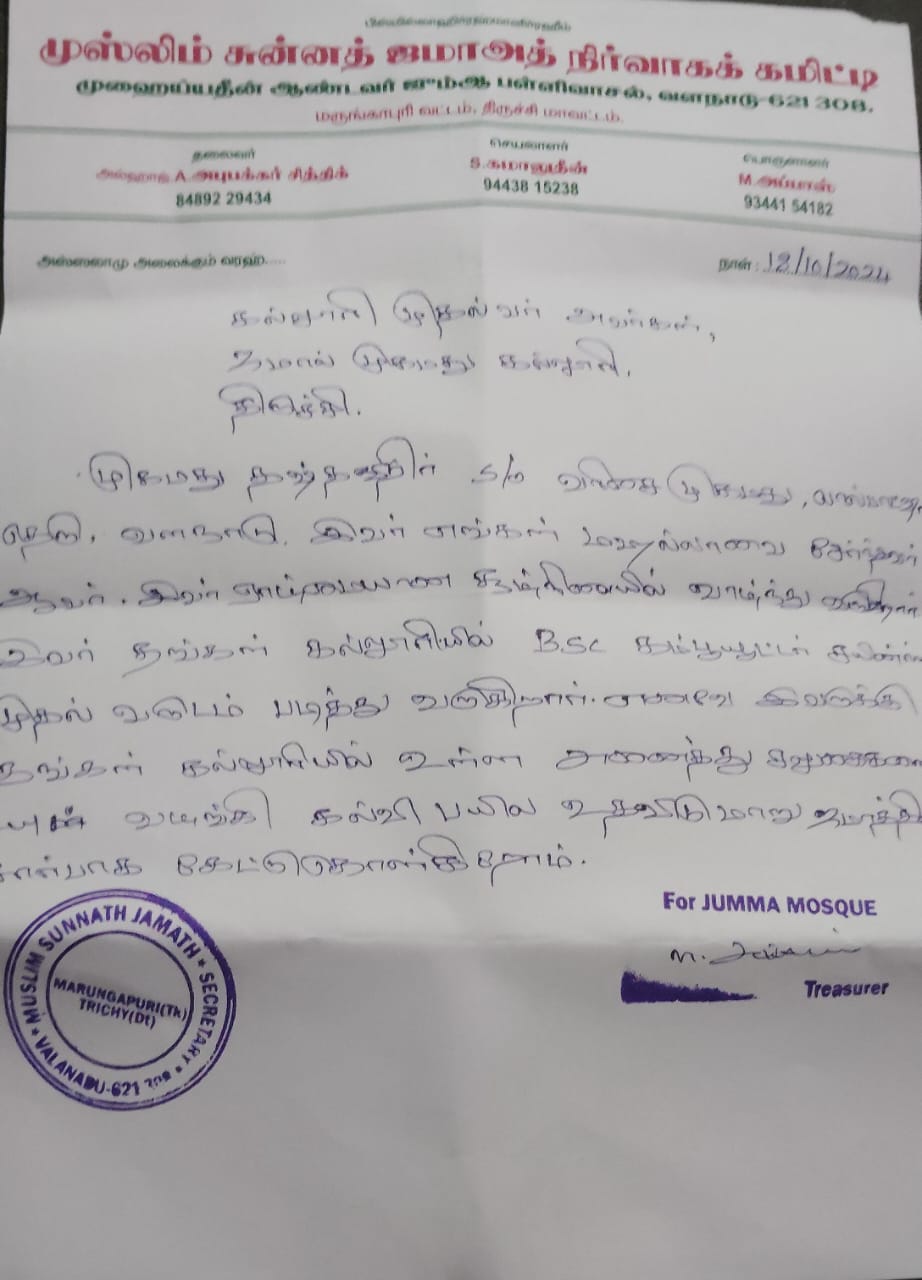 பிஸ்மில்லாஹிர்ரஹ்மானிர்ரஹீம்
முஸ்லிம் சுன்னத் ஜமாஅத் நிர்வாகக் கமிட்டி
முஹைய்யதீன் ஆண்டவர் ஜும்ஆ பள்ளிவாசல், வளநாடு-621 308.
மருங்காபுரி வட்டம், திருச்சி மாவட்டம்.
தலைவர் செயலாளர் பொருளாளர்
அல்ஹாஜ் A.அபுபக்கர் சித்திக் S.கமாலுதீன் M.அப்பாஸ்
84892 29434 94438 15238 93441 54182
அஸ்ஸலாமு அலைக்கும் வரஹ்.....
நாள் : 12/10/2024
கல்லூரி முதல்வர் அவர்கள்,
ஜமால் முகமது கல்லூரி,
திருச்சி.
முகமது S/o முகமது,
வளநாடு. இவர் எங்கள் மஹல்லாவை சேர்ந்தவர்
ஆவர். இவர் ஏழ்மையான சூழ்நிலையில் வாழ்ந்து வருகிறார்
இவர் தங்கள் கல்லூரியில் B.Sc கம்ப்யூட்டர்
முதல் வருடம் படித்து வருகிறார். எனவே இவருக்கு
தங்கள் கல்லூரியில் உள்ள அனைத்து சலுகைகளை
யும் வழங்கி கல்வி பயில உதவிடுமாறு ஜமாத்தி
சார்பாக கேட்டுகொள்கிறோம்.
For JUMMA MOSQUE
Treasurer
MUSLIM SUNNATH JAMATH * SECRETARY * VALANADU-621 308 *
MARUNGAPURI(Tk)
TRICHY(Dt)